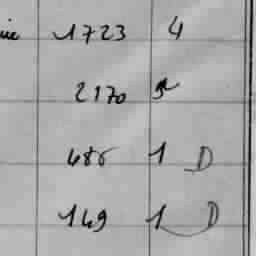 1723 4
2170
486 1 D
149 1 D